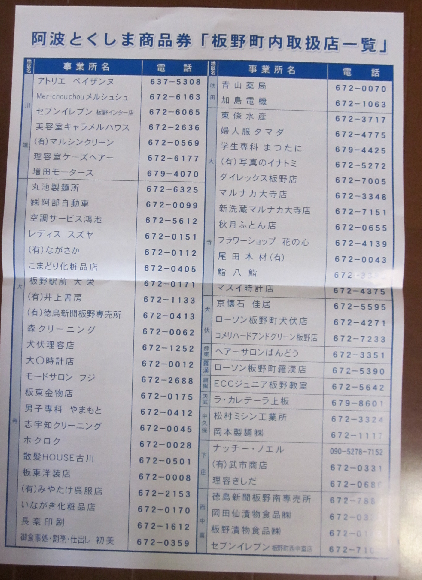 阿波とくしま商品券「板野町内取扱店一覧」
事業所名 電話
アトリエ ペイザンヌ 637-5308
メルシュシュ 672-6163
セブンイレブン 板野インター店 672-6065
美容室キャラメルハウス 672-2636
(有)マルシンクリーン 672-0569
理容室ケーズヘアー 672-6177
増田モータース 679-4070
丸池製麺所 672-6325
㈱阿部自動車 672-0099
空調サービス鴻池 672-5612
レディス スズヤ 672-0151
(有)ながさか 672-0112
こまどり化粧品店 672-0405
板野駅前 大栄 672-0171
(有)井上書房 672-1133
(有)徳島新聞板野専売所 672-0413
森クリーニング 672-0062
犬伏理容店 672-1252
大〇時計店 672-0012
モードサロン フジ 672-2688
板東金物店 672-0175
男子専科 やまもと 672-0412
志宇知クリーニング 672-0045
ホクロク 672-0028
散髪HOUSE古川 672-0501
板東洋装店 672-0008
(有)みやたけ呉服店 672-2153
いなぎ化粧品店 672-0170
長楽印刷 672-1612
初美 672-0359
事業所名 電話
青山薬局 672-0070
加島電機 672-1063
東條水産 672-3717
婦人服タマダ 672-4775
学生専科 まつたに 679-4425
(有)写真のイナトミ 672-5272
ダイレックス板野店 672-7005
マルナカ大寺店 672-3348
新洗蔵マルナカ大寺店 672-7151
秋月ふとん店 672-0655
フラワーショップ 花の心 672-4139
尾田木材(有) 672-0043
鮨八鮨
マスイ時計店 672-4375
京懐石 佳居 672-5595
ローソン板野町犬伏店 672-4271
コメリハードアンドグリーン板野店 672-7233
ヘアーサロンばんどう 672-3351
ローソン板野町羅漢店 672-5390
ECCジュニア板野教室 672-5642
ラ・カレテーラ上板 679-8601
松村ミシン工業所 672-332
岡本製麺㈱ 672-111
ナッチー・ノエル 090-5278-7152
(有)武市商店 672-0331
理容きしだ 672-068
徳島新聞板野南専売所 672-7
岡田仙漬物食品㈱ 672-0
板野漬物食品㈱ 672-0
セブンイレブン 672-7